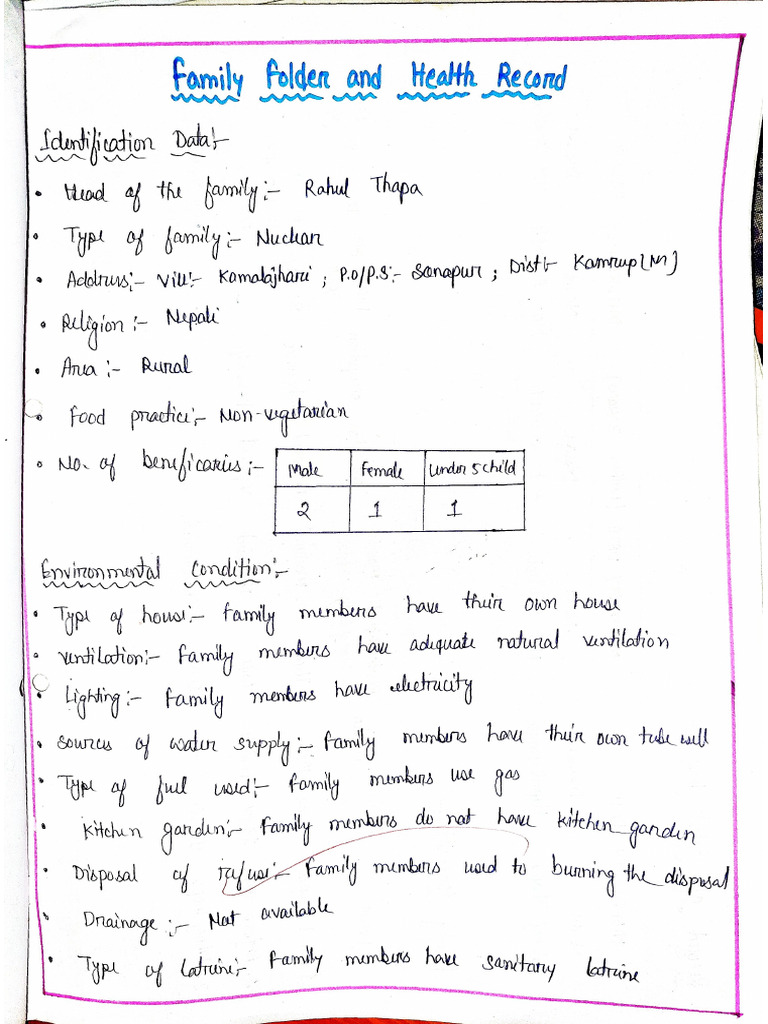 Family Folder and Health Record
Identification Data:-
• Head of the family:- Rahul Thapa
• Type of family:- Nuclear
• Address:- Vill:- Kamalajhari ; P.O/P.S:- Sonapur ; Dist:- Kamrup(M)
• Religion:- Nepali
• Area:- Rural
• Food practice:- Non-vegetarian
• No. of beneficaries:- Male Female Under 5 child
2 1 1
Environmental Condition:-
• Type of house:- Family members have their own house
• Ventilation:- Family members have adequate natural ventilation
• Lighting:- Family members have electricity
• Sources of water supply:- Family members have their own tube well
• Type of fuel used:- Family members use gas
• Kitchen garden:- Family members do not have kitchen garden
• Disposal of refuse:- Family members used to burning the disposal
• Drainage:- Not available
• Type of latrine:- Family members have sanitary latrine